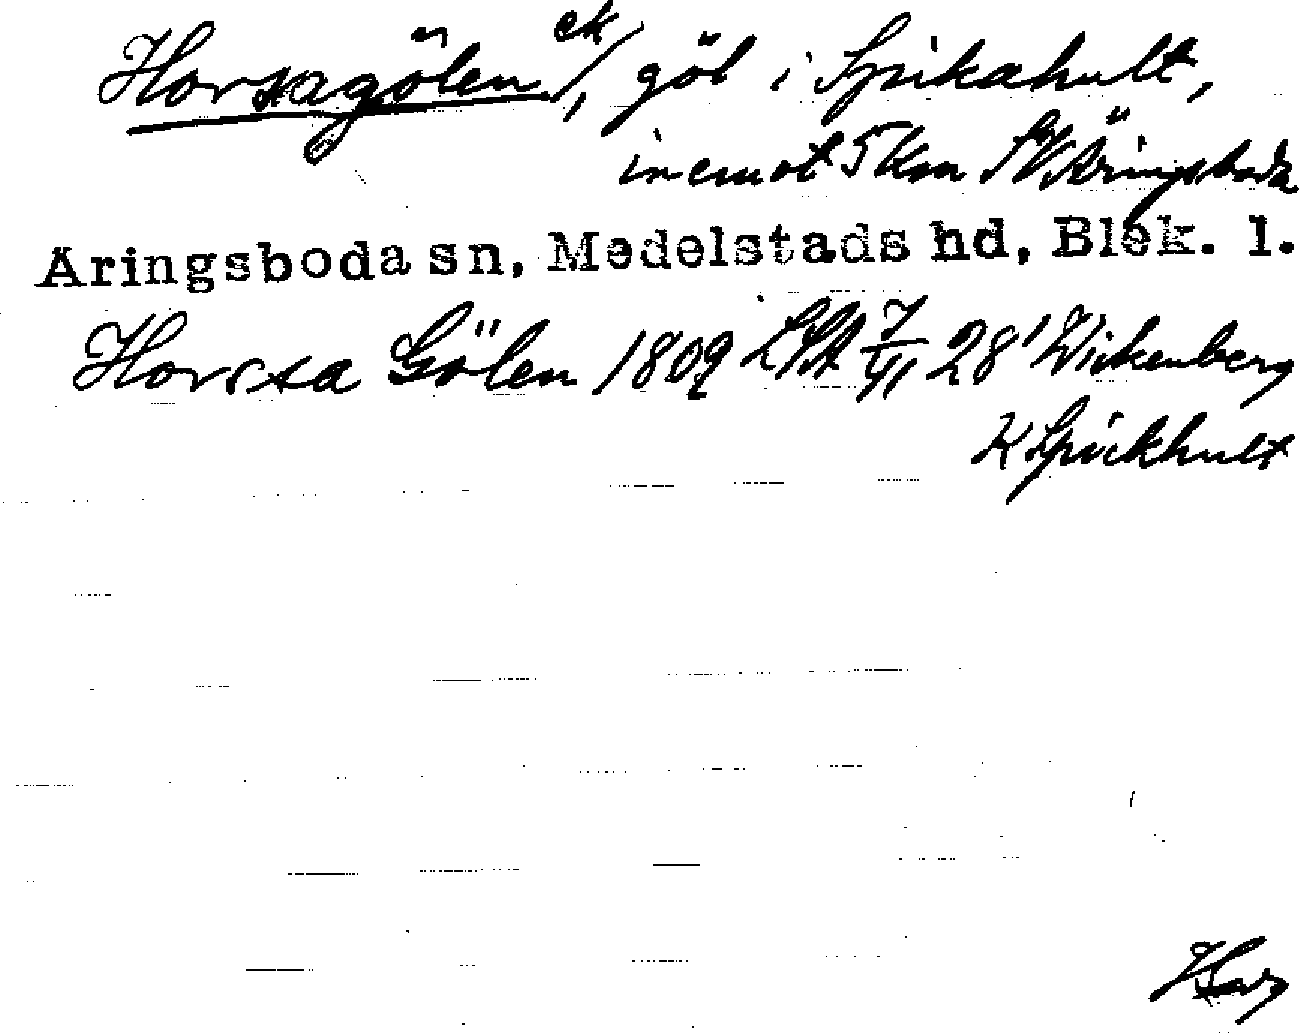 ek
Horsagölen, göl i Spikahult,
inemot 5 km SV Äringsboda
Äringsboda sn, Medelstads hd, Blek. l.
Horssa Gölen 1809 LSA 7/VI 28 Wickenberg
K Spikhult